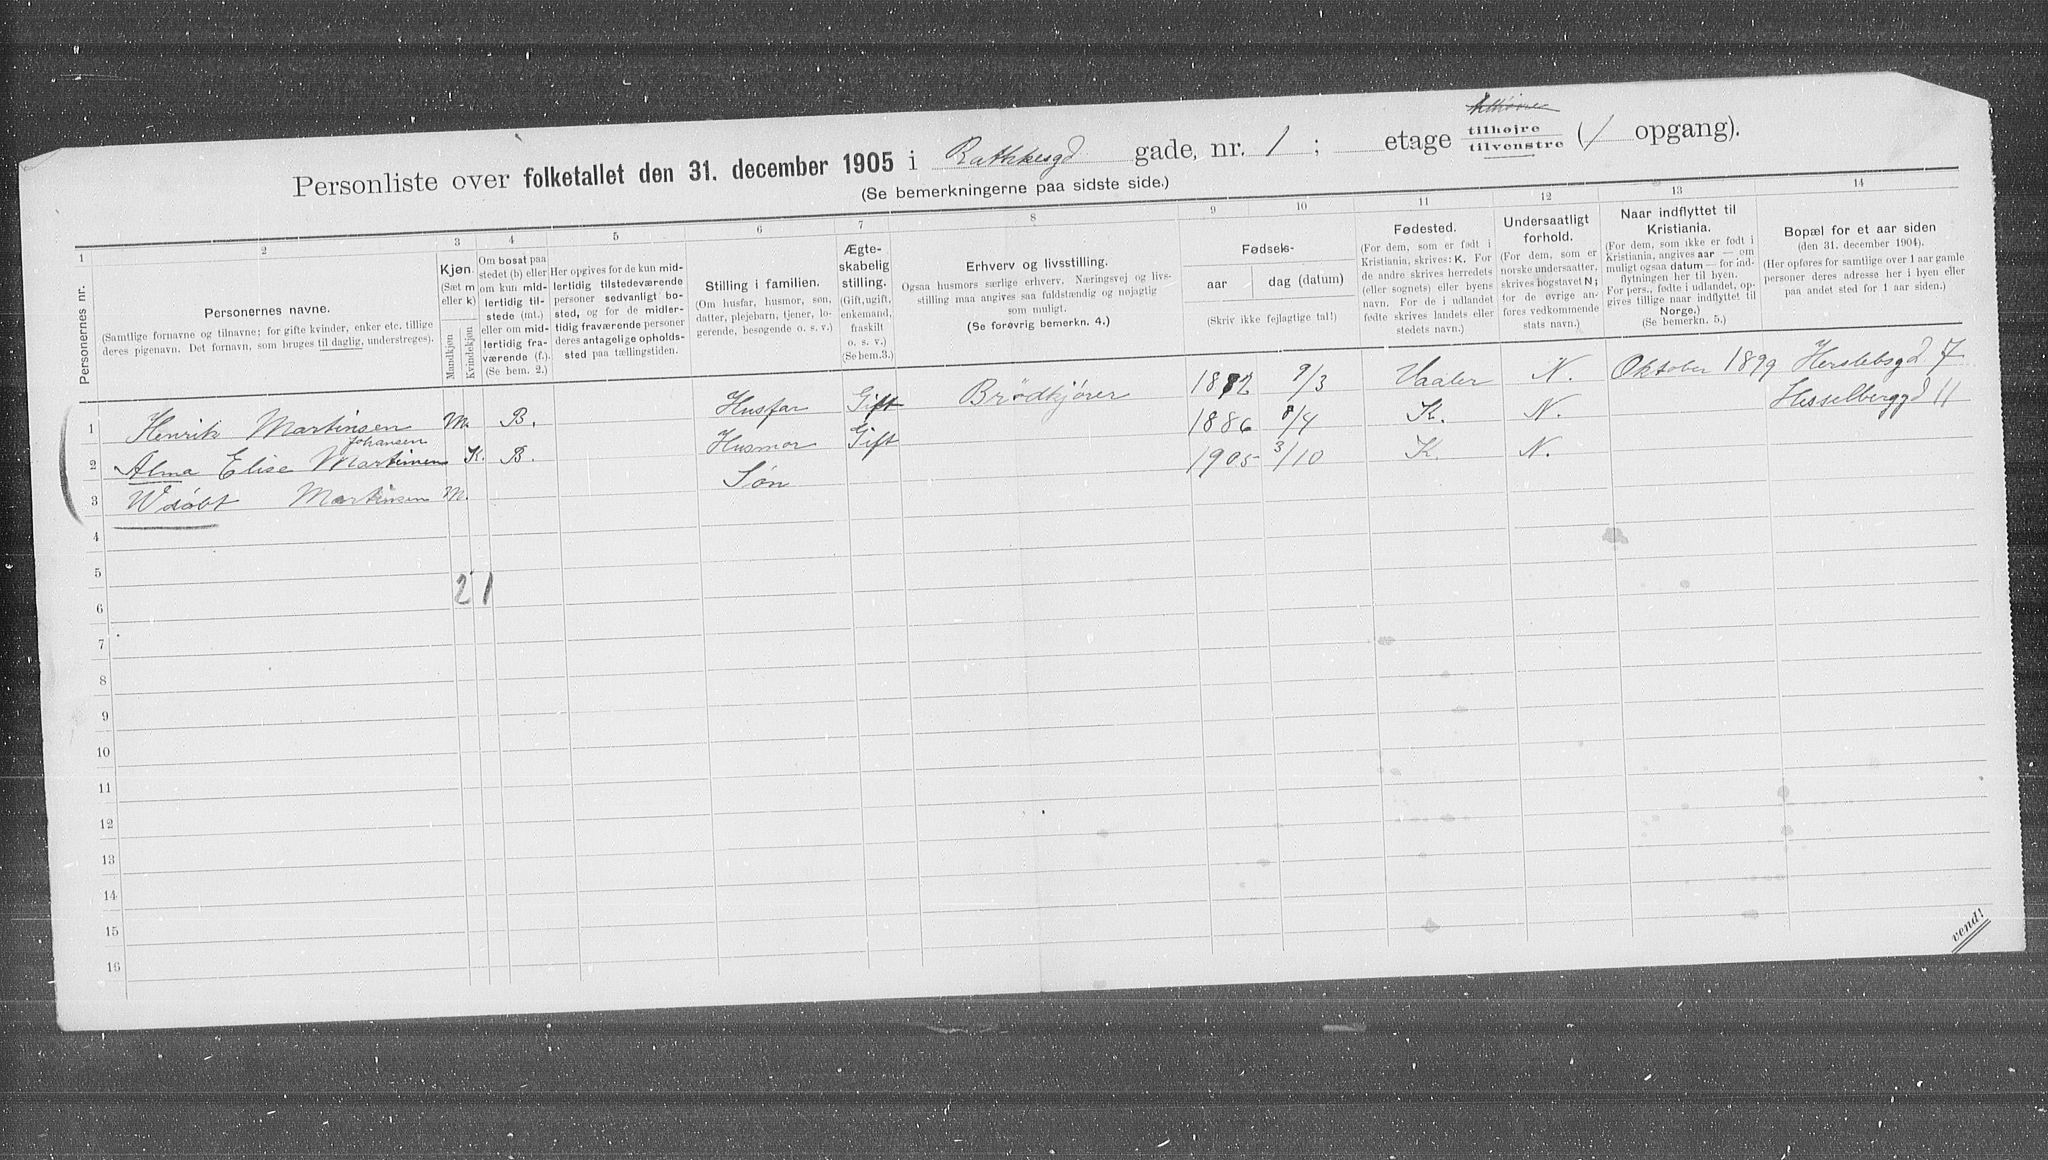 Personliste over folketallet den 31. december 1905 i Rathkesgd gade, nr. 1 ; etage tilhøjre tilvenstre (1 opgang).
(Se bemerkningerne paa sidste side.)
1 2 3 4 5 6 7 8 9 10 11 12 13 14
Personernes nr.
Personernes navne.
(Samtlige fornavne og tilnavne; for gifte kvinder, enker etc. tillige
deres pigenavn. Det fornavn, som bruges til daglig, understreges).
Kjøn.
(Sæt m
eller k)
Mandkjøn
Kvindekjøn
Om bosat paa
stedet (b) eller
om kun mid-
lertidig til-
stede (mt.)
eller om mid-
lertidig fra-
værende (f.).
(Se bem. 2.)
Her opgives for de kun mid-
lertidig tilstedeværende
personer sedvanligt bo-
sted, og for de midler-
tidig fraværende personer
deres antagelige opholds-
sted paa tællingstiden.
Stilling i familien.
(Om husfar, husmor, søn,
datter, plejebarn, tjener, lo-
gerende, besøgende o. s. v.)
Ægte-
skabelig
stilling.
(Gift, ugift,
enkemand,
fraskilt
o. s. v.)
(Se bem.3.)
Erhverv og livsstilling.
Ogsaa husmors særlige erhverv. Næringsvej og livs-
stilling maa angives saa fuldstændig og nøjagtig
som muligt.
(Se forøvrig bemerkn. 4.)
Fødsels-
aar dag (datum)
(Skriv ikke fejlagtige tal!)
Fødested.
(For dem, som er født i
Kristiania, skrives: K. For
de andre skrives herredets
(eller sognets) eller byens
navn. For de i udlandet
fødte skrives landets eller
stedets navn.)
Undersaatligt
forhold.
(For dem, som er
norske undersaatter,
skrives bogstavet N;
for de øvrige an-
føres vedkommende
stats navn.)
Naar indflyttet til
Kristiania.
(For dem, som ikke er født i
Kristiania, angives aar — om
muligt ogsaa datum — for ind-
flytningen her til byen.
For pers., fødte i udlandet, op-
gives tillige naar indflyttet til
Norge.)
(Se bemerkn. 5.)
Bopæl for et aar siden
(den 31. december 1904).
(Her opføres for samtlige over 1 aar gamle
personer deres adresse her i byen eller
paa andet sted for 1 aar siden.)
1 Henrik Martinsen M. B. Husfar Gift Brödkjörer 1882 9/3 Vaaler N. Oktober 1899 Herslebsgd 7
Johansen
2 Alma Elise Martinsen K. B. Husmor Gift 1886 8/4 K. N. Hesselberggd 11
3 Udöbt Martinsen M. Sön 1905 3/10 K. N.
4
5
2 1
6
7
8
9
10
11
12
13
14
15
16
vend!